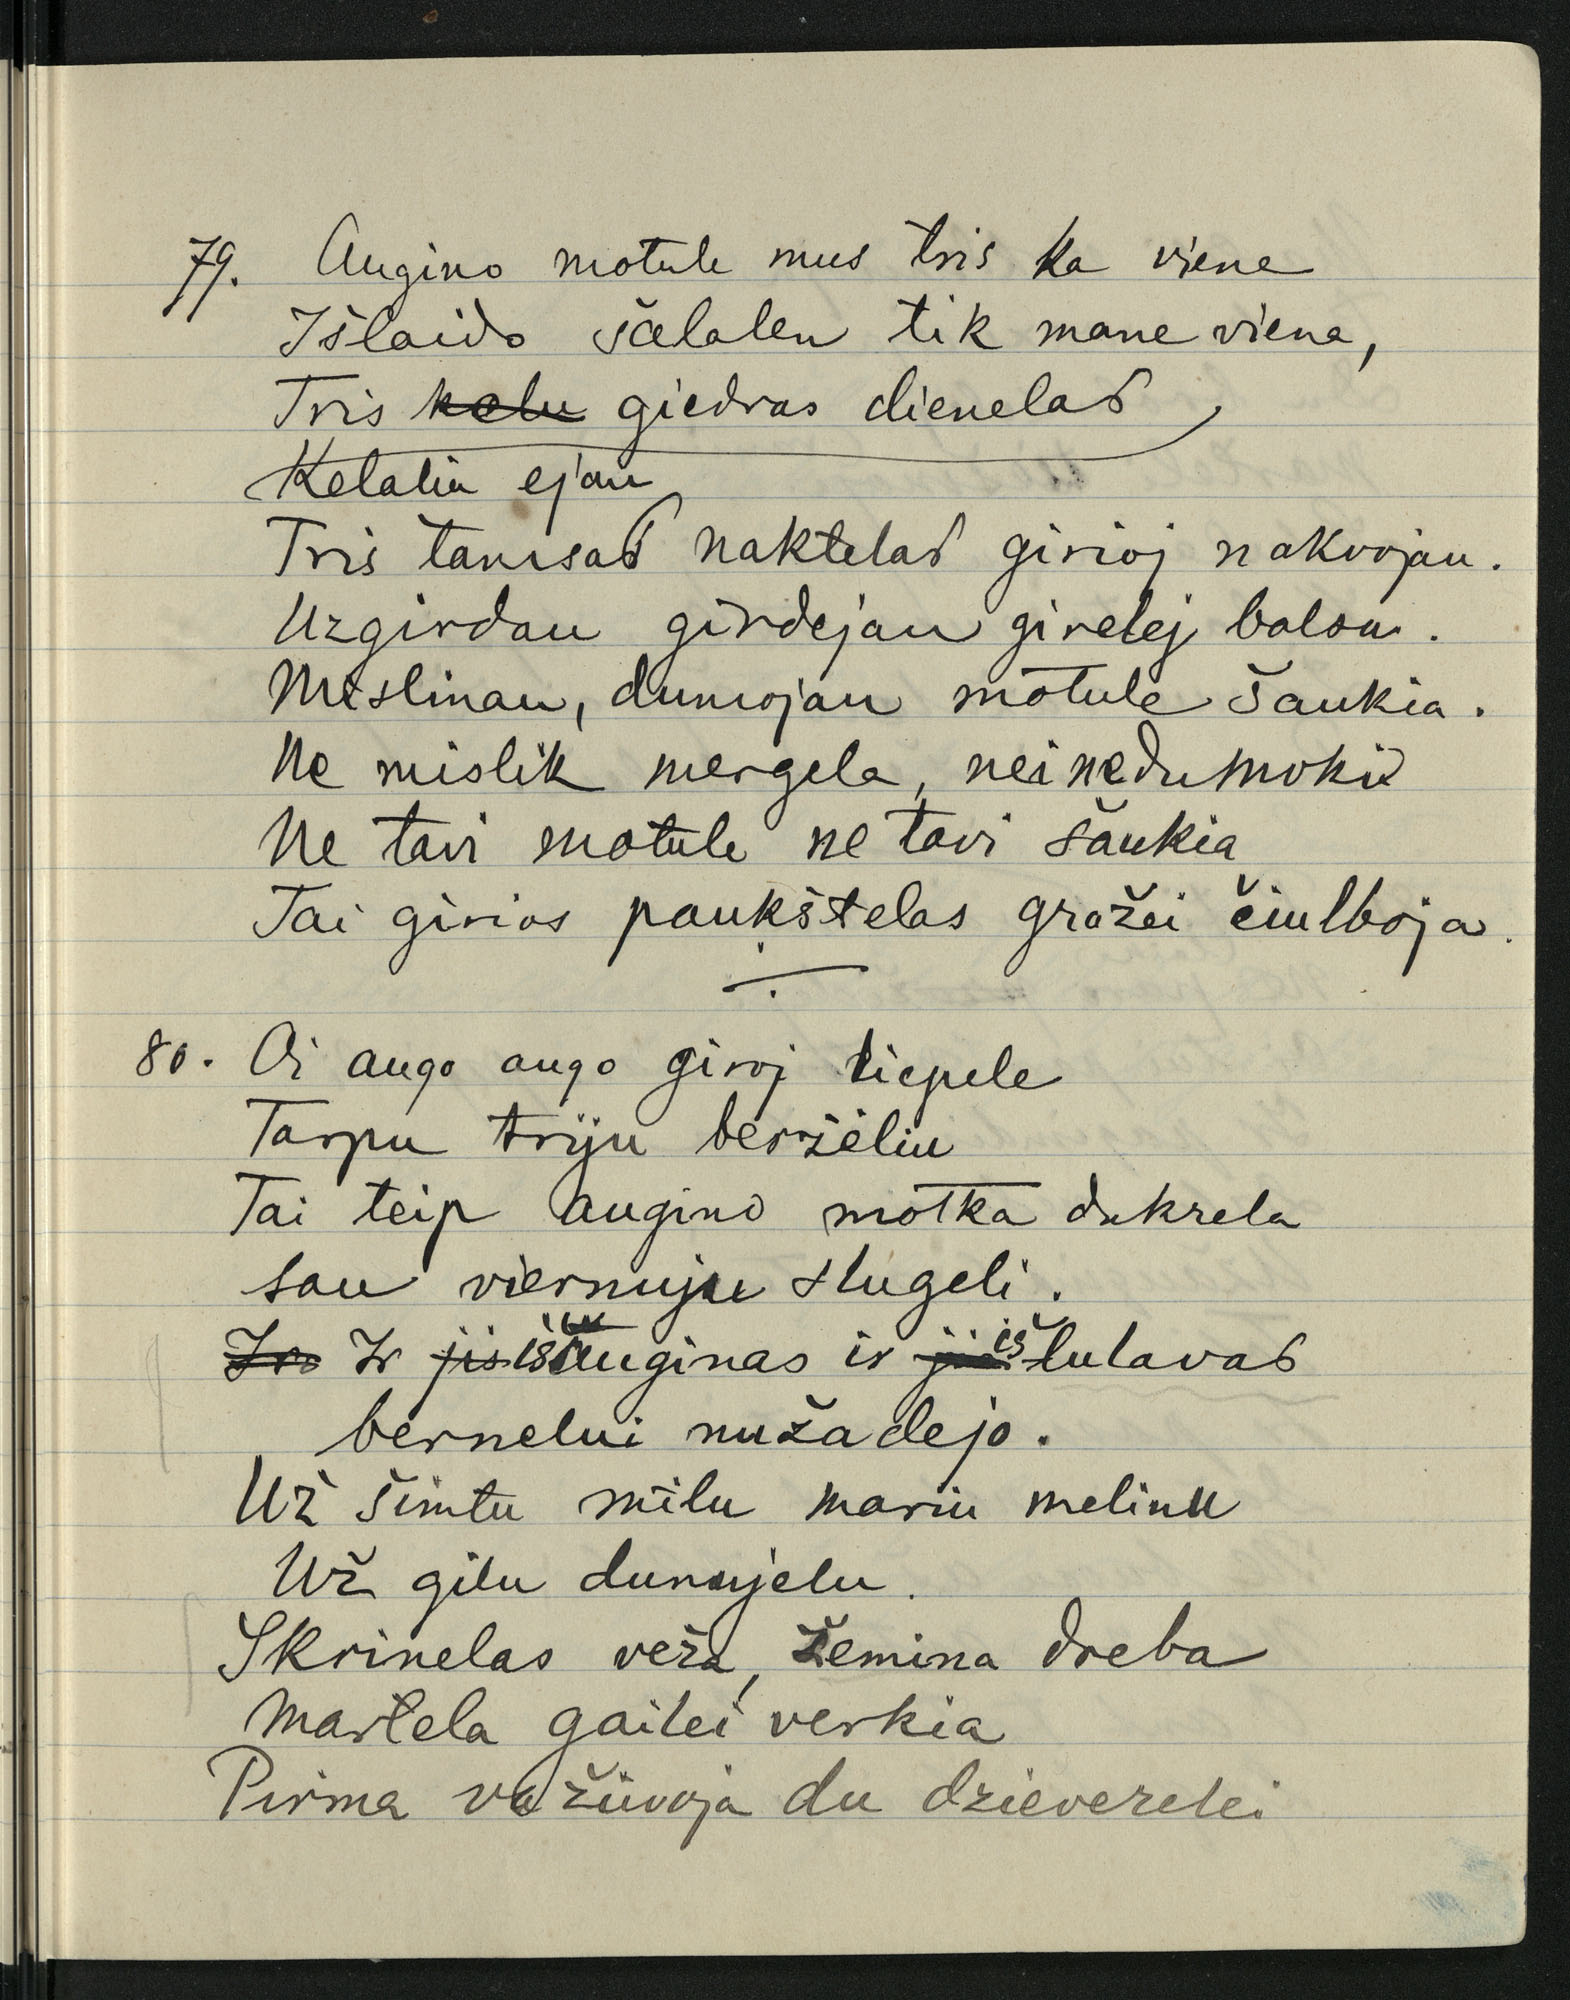 79. Augino motule mus tris ka viena
Išlaido šalalen tik mane viena,
Tris kelu giedras dienelas
Kelaliu ejau
Tris tamsas naktelas girioj nakvojau.
Uzgirdau girdejau girelej balsu.
Mislinau, dumojau motule šaukia.
Ne mislik mergela, nei nedumokie
Ne tavi motule ne tavi šaukia
Tai girios paukštelas gražei čiulboja.
80. Oi augo augo giroj liepele
Tarpu triju berželiu
Tai teip augino motka dukrela
sau viernuju slugeli.
Ir jis išauginas ir išlulavas
bernelui nužadejo.
Už šimtu milu mariu melinu
Už gilu dunojelu.
Skrinelas veža, žemina dreba
Martela gailei verkia
Pirma važiuoja du dzieverelei